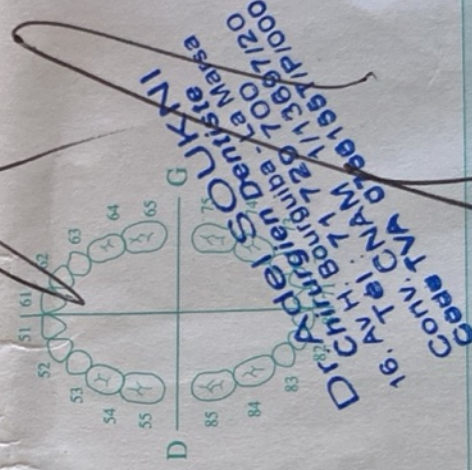 51 61
52 62
53 63
54 64
55 65
D G
85 75
84 74
83
82
Dr. Adel SOUKNI
Chirurgien Dentiste
16, Av H. Bourguiba - La Marsa
Tél : 71 729 700
Conv. CNAM 1/13697/20
Code TVA